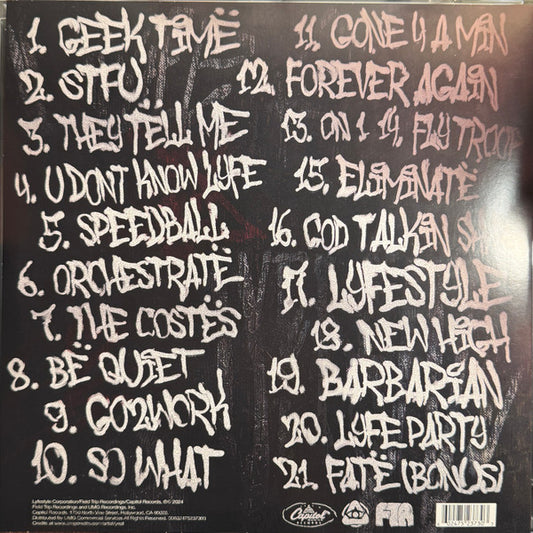 1. GEEK TIMË
2. STFU
3. THEY TËLL ME
4. U DONT KNOW LYFE
5. SPEEDBALL
6. ORCHESTRATË
7. THE COSTËS
8. BË QUIET
9. GO2WORK
10. SO WHAT
11. GONE 4 A MIN
12. FOREVER AGAIN
13. ON 1 14. FLY TROOP
15. ELIMINATË
16. GOD TALKIN
17. LYFESTYLE
18. NEW HIGH
19. BARBARIAN
20. LYFE PARTY
21. FATË (BONUS)
Lyfestyle Corporation/Field Trip Recordings/Capitol Records, ℗© 2024
Field Trip Recordings and UMG Recordings, Inc.
Capitol Records. 1750 North Vine Street, Hollywood, CA 90028.
Distributed by UMG Commercial Services. All Rights Reserved.
Capitol
RECORDS
FTR